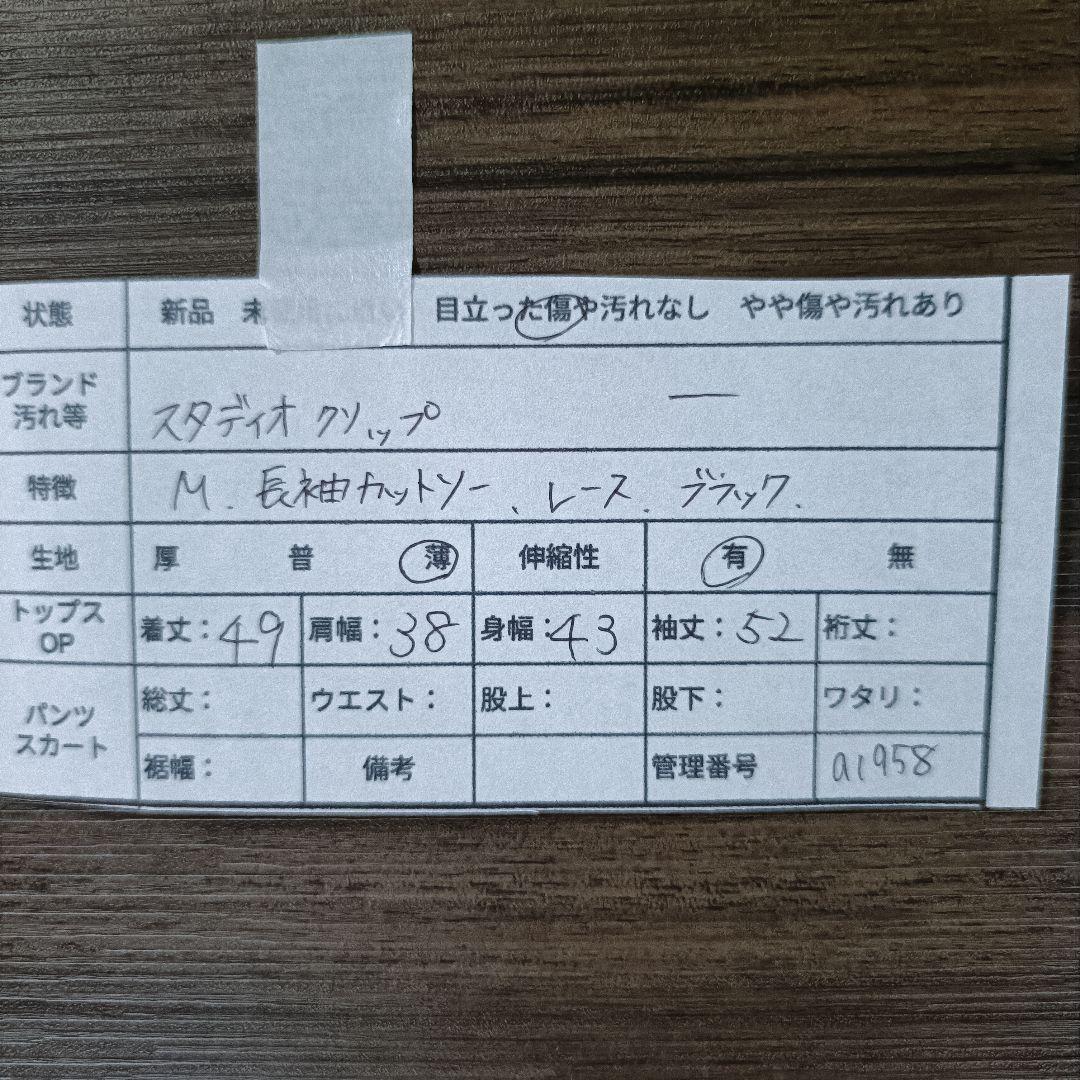 状態 新品 未 目立った傷や汚れなし やや傷や汚れあり
ブランド
汚れ等 スタディオクリップ ー
特徴 M. 長袖カットソー、レース. ブラック.
生地 厚 普 薄 伸縮性 有 無
トップス
OP 着丈:49 肩幅:38 身幅:43 袖丈:52 裄丈:
パンツ
スカート 総丈: ウエスト: 股上: 股下: ワタリ:
裾幅: 備考 管理番号 a1958